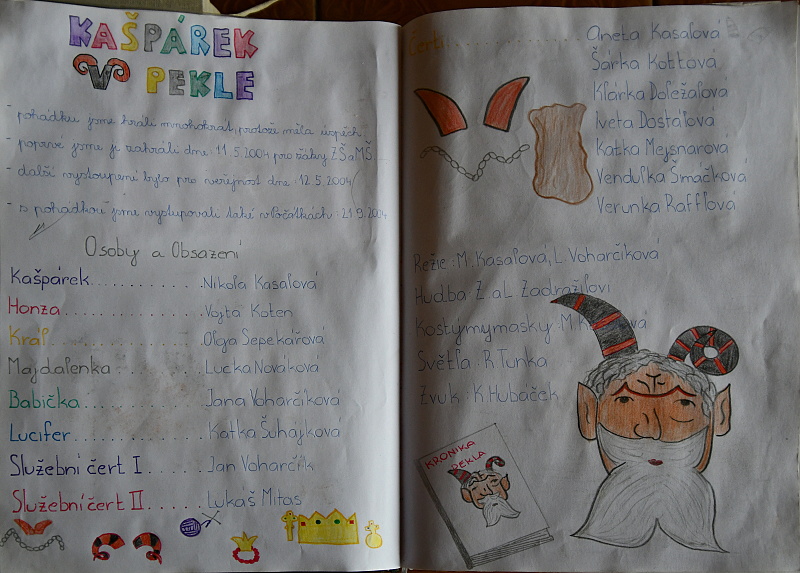 KAŠPÁREK
V PEKLE
- pohádku jsme hráli mnohokrát, protože měla úspěch.
- poprvé jsme ji zahráli dne: 11.5.2004 pro žáky ZŠ a MŠ
- další vystoupení bylo pro veřejnost dne: 12.5.2004
- s pohádkou jsme vystupovali také v Počátkách: 21.9.2004
Osoby a Obsazení
Kašpárek.............Nikola Kasalová
Honza.............Vojta Koten
Král.............Olga Sepekářová
Majdalenka.............Lucka Nováková
Babička.............Jana Voharčíková
Lucifer.............Katka Šuhajková
Služební čert I......Jan Voharčík
Služební čert II.....Lukáš Mitas
Čerti.............Aneta Kasalová
Šárka Kottová
Klárka Doležalová
Iveta Dostálová
Katka Mejsnarová
Vendulka Šmačková
Verunka Rafflová
Režie: M. Kasalová, L. Voharčíková
Hudba Z. a L. Zadražilovi
Kostýmy masky: M.
Světla: R. Tunka
Zvuk: K. Hubáček
KRONIKA
PEKLA